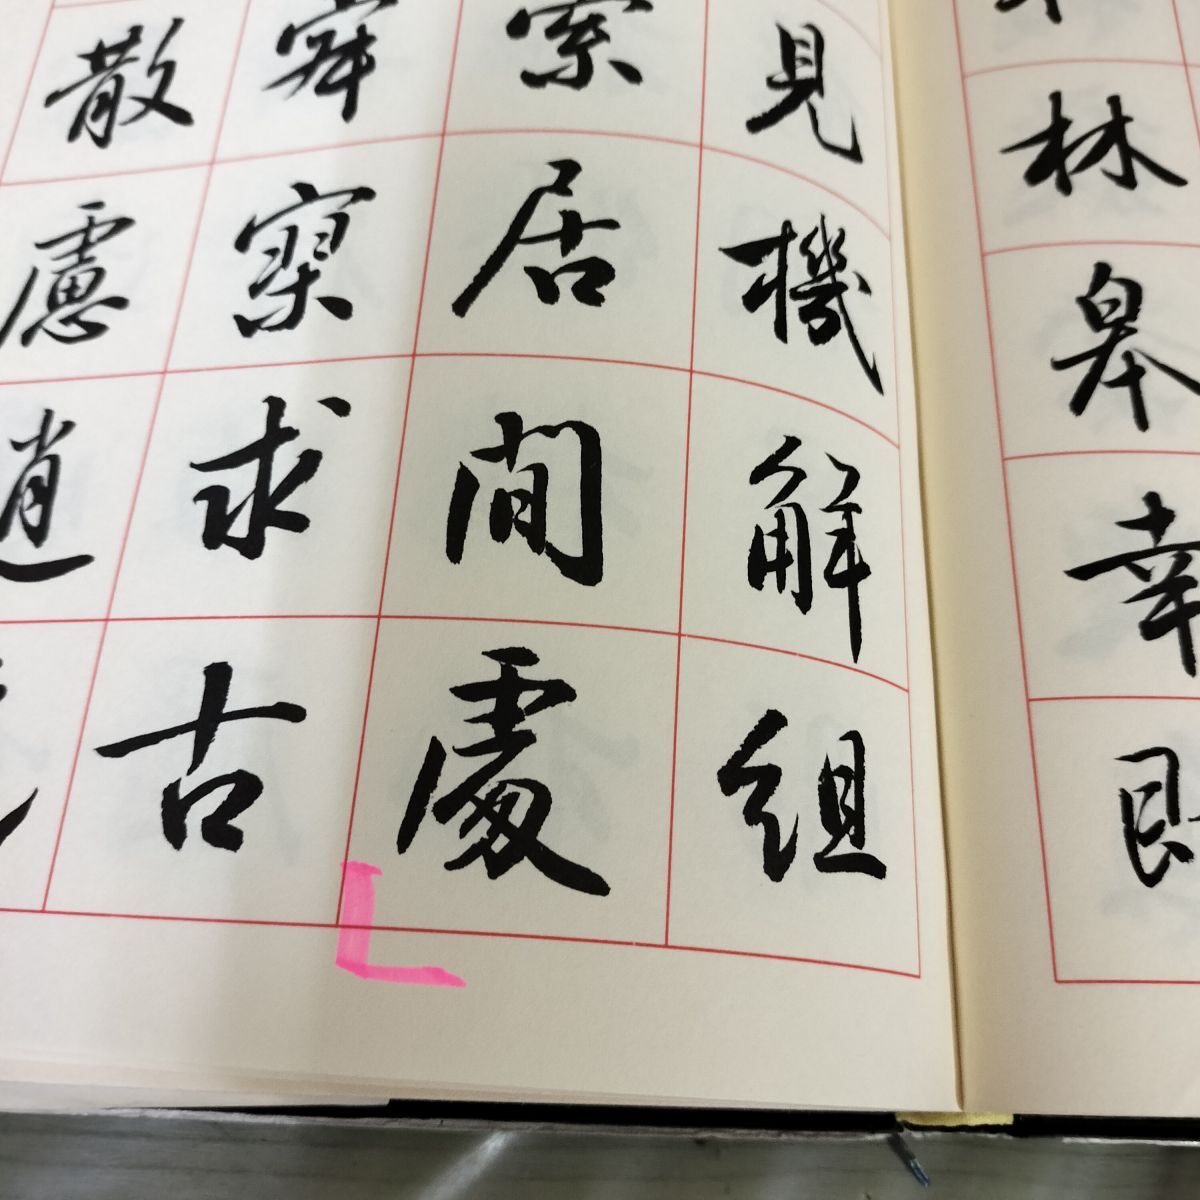 林皋幸即
見機解組
索居閒處
寂寥求古
散慮逍